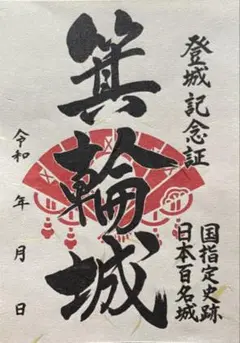 登城記念証
箕輪城
国指定史跡
日本百名城
令和　年　月　日